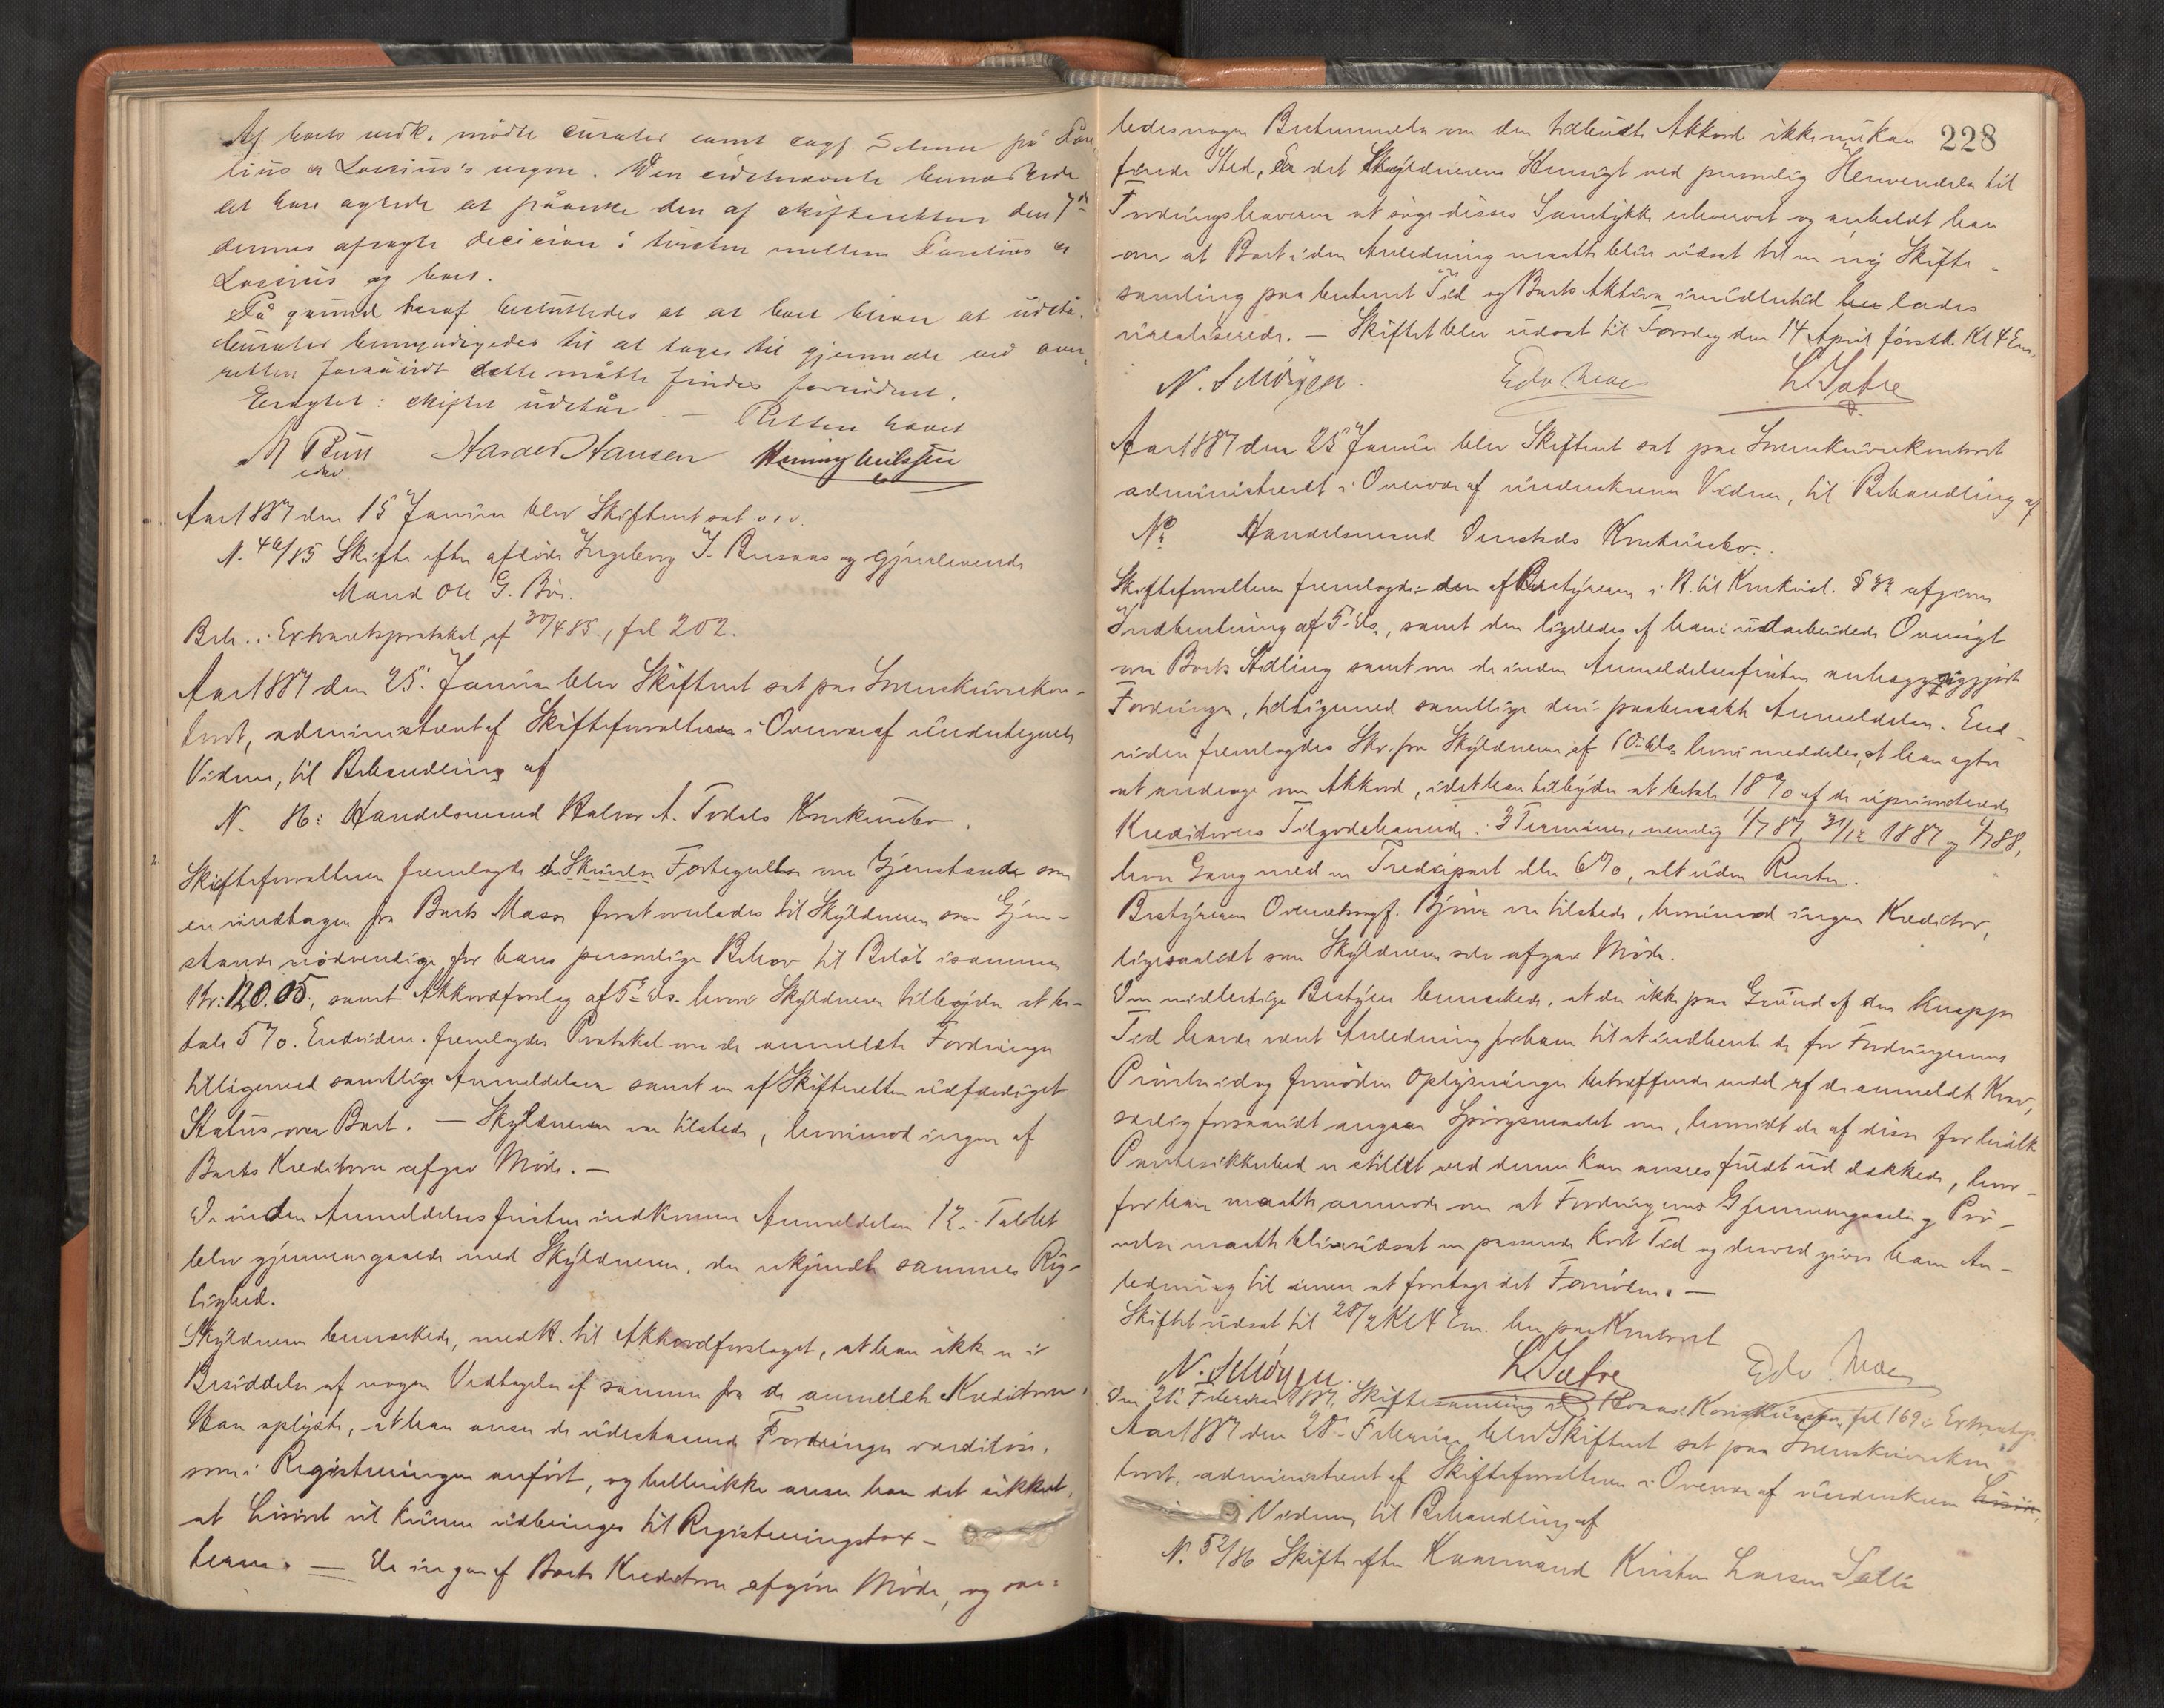 Af boets vedk. mødte curator samt sagf. på
lius & Lossius's vegne. Den sidstnævnte bemærkede
at have agtede at påanke den af skifteretten den 7de
dennes afsagte decision i tvisten mellem &
Lossius og boet.
På grund heraf besluttedes at at boet bliver at udstå.
Curator bemyndigedes til at tage til gjenmæle ved over-
retten forsåvidt dette måtte findes fornødent.
Eragtet: skiftet udstår. — Retten hævet
Harald Hansen Henning
Aar 1887 den 15 Januar blev Skifteret sat o.s.v.
N. 46/85 Skifte efter afdøde Ingeborg J. og gjenlevende
Mand Ole G. Bøe.
Beh. i Extraretsprotokol af 30/4 85, fol 202.
Aar 1887 den 25. Januar blev Skifteret sat paa Sorenskriverkon-
toret, administreret af Skifteforvalteren i Overvær af undertegnede
Vidner, til Behandling af
N. 86: Handelsmand Halvor A. Todals Konkursbo.
Skifteforvalteren fremlagde Fortegnelse over Gjenstande som
er undtagen fra Boets Masse forat overlades til Skyldneren som Gjen-
stande nødvendige for hans personlige Behov til Beløb isammen
Kr: 120.05, samt Akkordforslag af 5te ds. hvori Skyldneren tilbyder at be-
tale 5%. Endvidere fremlagdes Protokol over de anmeldte Fordringer
tilligemed samtlige Anmeldelser samt en af Skifteretten udfærdiget
Status over Boet. — Skyldneren var tilstede, hvorimod ingen af
Boets Kreditorer afgav Møde. —
De inden Anmeldelsesfristen indkomne Anmeldelser 12 i Tallet
blev gjennemgaaede med Skyldneren, der erkjendte sammes Rig-
tighed.
Skyldneren bemærkede, med H. til Akkordforslaget, at han ikke er i
Besiddelse af nogen Vedtagelse af samme fra de anmeldte Kreditorer.
Han oplyste, at han anser de udestaaende Fordringer værdiløse,
som i Registreringen anført, og hellerikke anser han det sikkert,
at Løsøret vil kunne udbringes til Registreringstax-
terne. — Da ingen af Boets Kreditorer afgiver Møde, og saa-
228
ledes nogen Bestemmelse om den tilbudte Akkord ikke nu kan
finde Sted, er det Skyldnerens Hensigt ved personlig Henvendelse til
Fordringshaverne at søge disses Samtykke erhvervet og anholdt han
om at Boet i den Anledning maatte blive udsat til en ny Skifte-
samling paa bestemt Tid og Boets Aktiva imidlertid lades
urealiserede. — Skiftet blev udsat til Torsdag den 14 April førstk. Kl 4 Em.
N. Selmørgen. Edv. Moe L. Sætre
Aar 1887 den 25 Januar blev Skifteret sat paa Sorenskriverkontoret
administreret i Overvær af underskrevne Vidner, til Behandling af
No Handelsmand Ourstads Konkursbo.
Skifteforvalteren fremlagde den af Bestyreren i H. til Konkursl. § 32 afgivne
Indberetning af 5te ds., samt den ligeledes af ham udarbeidede Oversigt
over Boets Stilling samt over de inden Anmeldelsesfristen
Fordringer, tilligemed samtlige deri paaberaabte Anmeldelser. End-
videre fremlagdes Skr. fra Skyldneren af 10de ds. hvori meddeles, at han agter
at andrage om Akkord, idet han tilbyder at betale 18% af de uprioriterede
Kreditorers Tilgodehavende i 3 Terminer, nemlig 1/7 87, 31/12 1887 og 1/7 88,
hver Gang med en Trediepart eller 6%, alt uden Renter.
Bestyreren Overretssagf. Bjønne var tilstede, hvorimod ingen Kreditor,
ligesaalidt som Skyldneren selv afgav Møde.
Den midlertidige Bestyrer bemærkede, at der ikke paa Grund af den knappe
Tid havde været Anledning for ham til at indhente de for Fordringernes
Prøvelse idag fornødne Oplysninger betræffende endel af de anmeldte Krav,
særlig forsaavidt angaar Spørgsmaalet om, hvorvidt de af disse for hvilke
Pantesikkerhed er stillet ved denne kan ansees fuldt ud dækkede, hvor-
for han maatte anmode om at Fordringernes Gjennemgaaelse og Prø-
velse maatte blive udsat en passende kort Tid og derved gives ham An-
ledning til imens at foretage det Fornødne. —
Skiftet udsat til 28/2 Kl 4 Em. her paa Kontoret
N. Selmørgen. L. Sætre Edv. Moe
Den 21 Februar 1887, Skiftesamling i Konkursbo, fol 169 i Extraretsp.
Aar 1887 den 28. Februar blev Skifteret sat paa Sorenskriverkon-
toret, administreret af Skifteforvalteren i Overvær af underskrevne
Vidner, til Behandling af
N. 52/86 Skifte efter Kaarmand Kristen Larsen Sætre